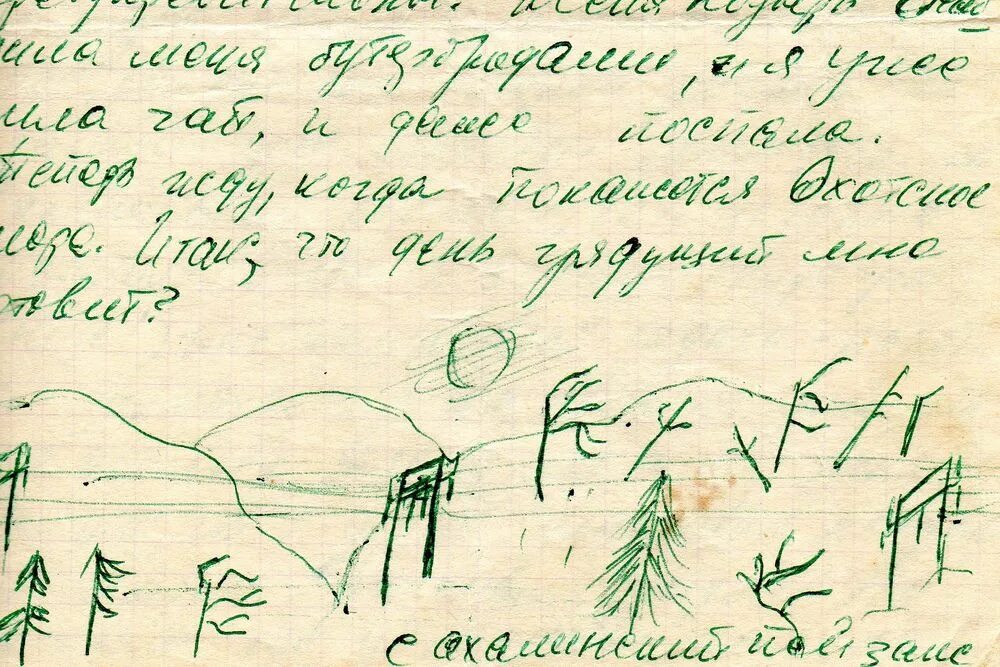 меня
ила меня бутербродами, и я уже
ила чай, и даже поспала.
Теперь жду, когда покажется Охотское
море. Итак, что день грядущий мне
готовит?
сахалинский пейзаж